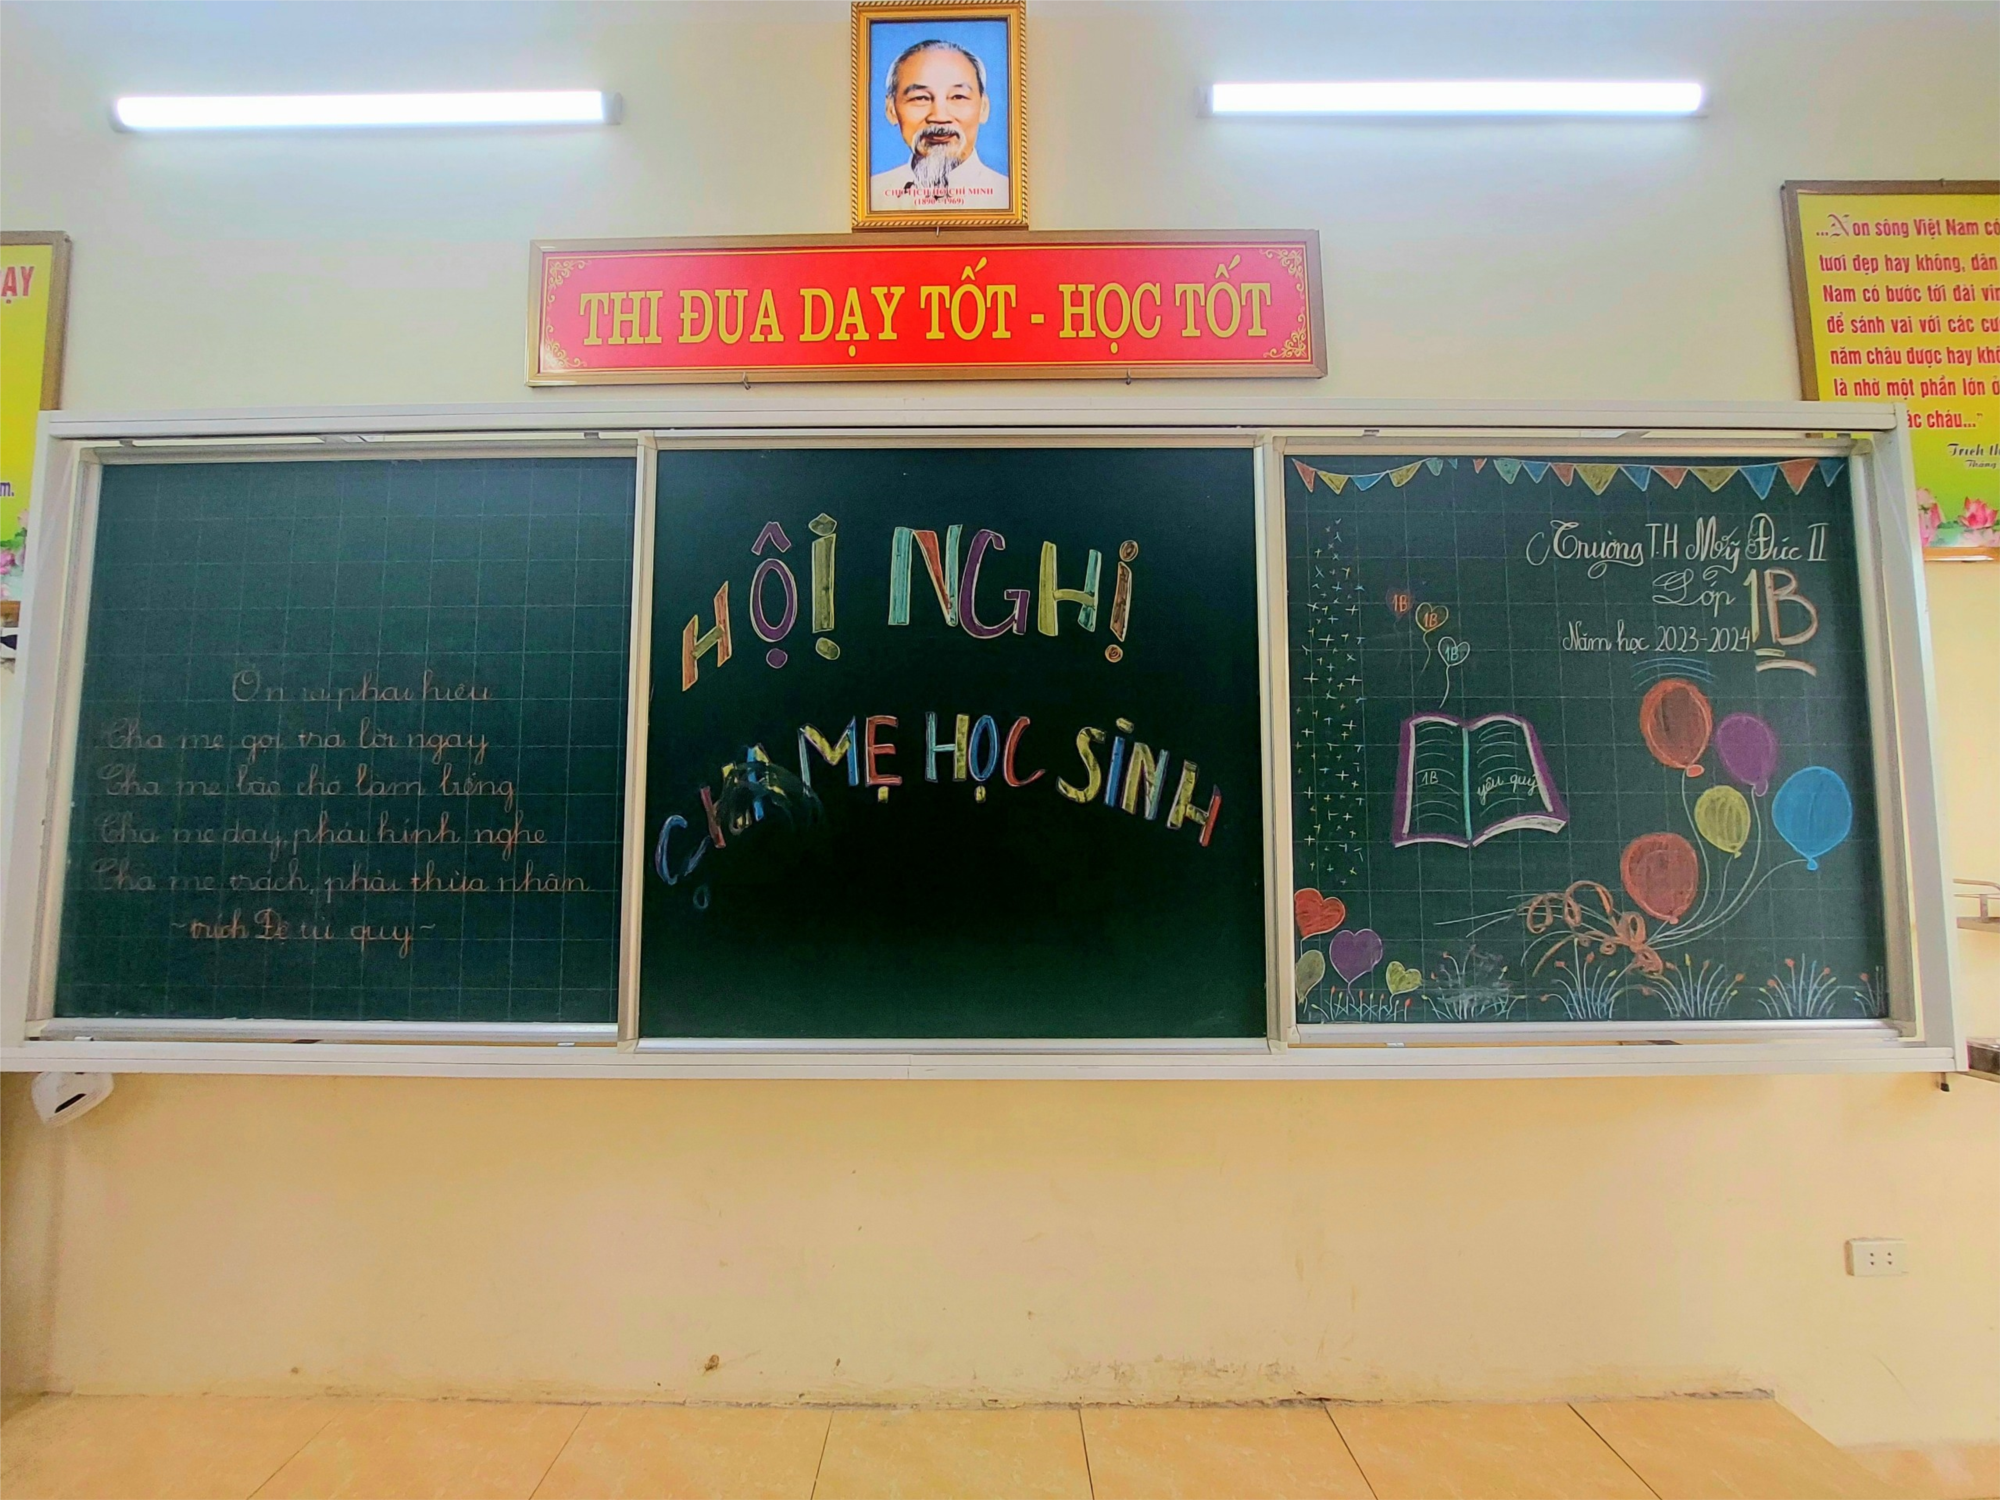 CHỦ TỊCH HỒ CHÍ MINH
(1890 - 1969)
THI ĐUA DẠY TỐT - HỌC TỐT
ẠY
m.
...Non sông Việt Nam có
tươi đẹp hay không, dân
Nam có bước tới đài vin
để sánh vai với các cư
năm châu được hay khô
là nhờ một phần lớn ở
ác cháu..."
Trích th
Tháng
Ở nhà phải hiếu
Cha mẹ gọi, trả lời ngay
Cha mẹ bảo chớ làm biếng
Cha mẹ dạy, phải kính nghe
Cha mẹ trách, phải thừa nhận
~trích Đệ tử quy~
HỘI NGHỊ
CHA MẸ HỌC SINH
Trường T.H Mỹ Đức II
Lớp 1B
Năm học 2023-2024
1B
1B
1B
1B yêu quý